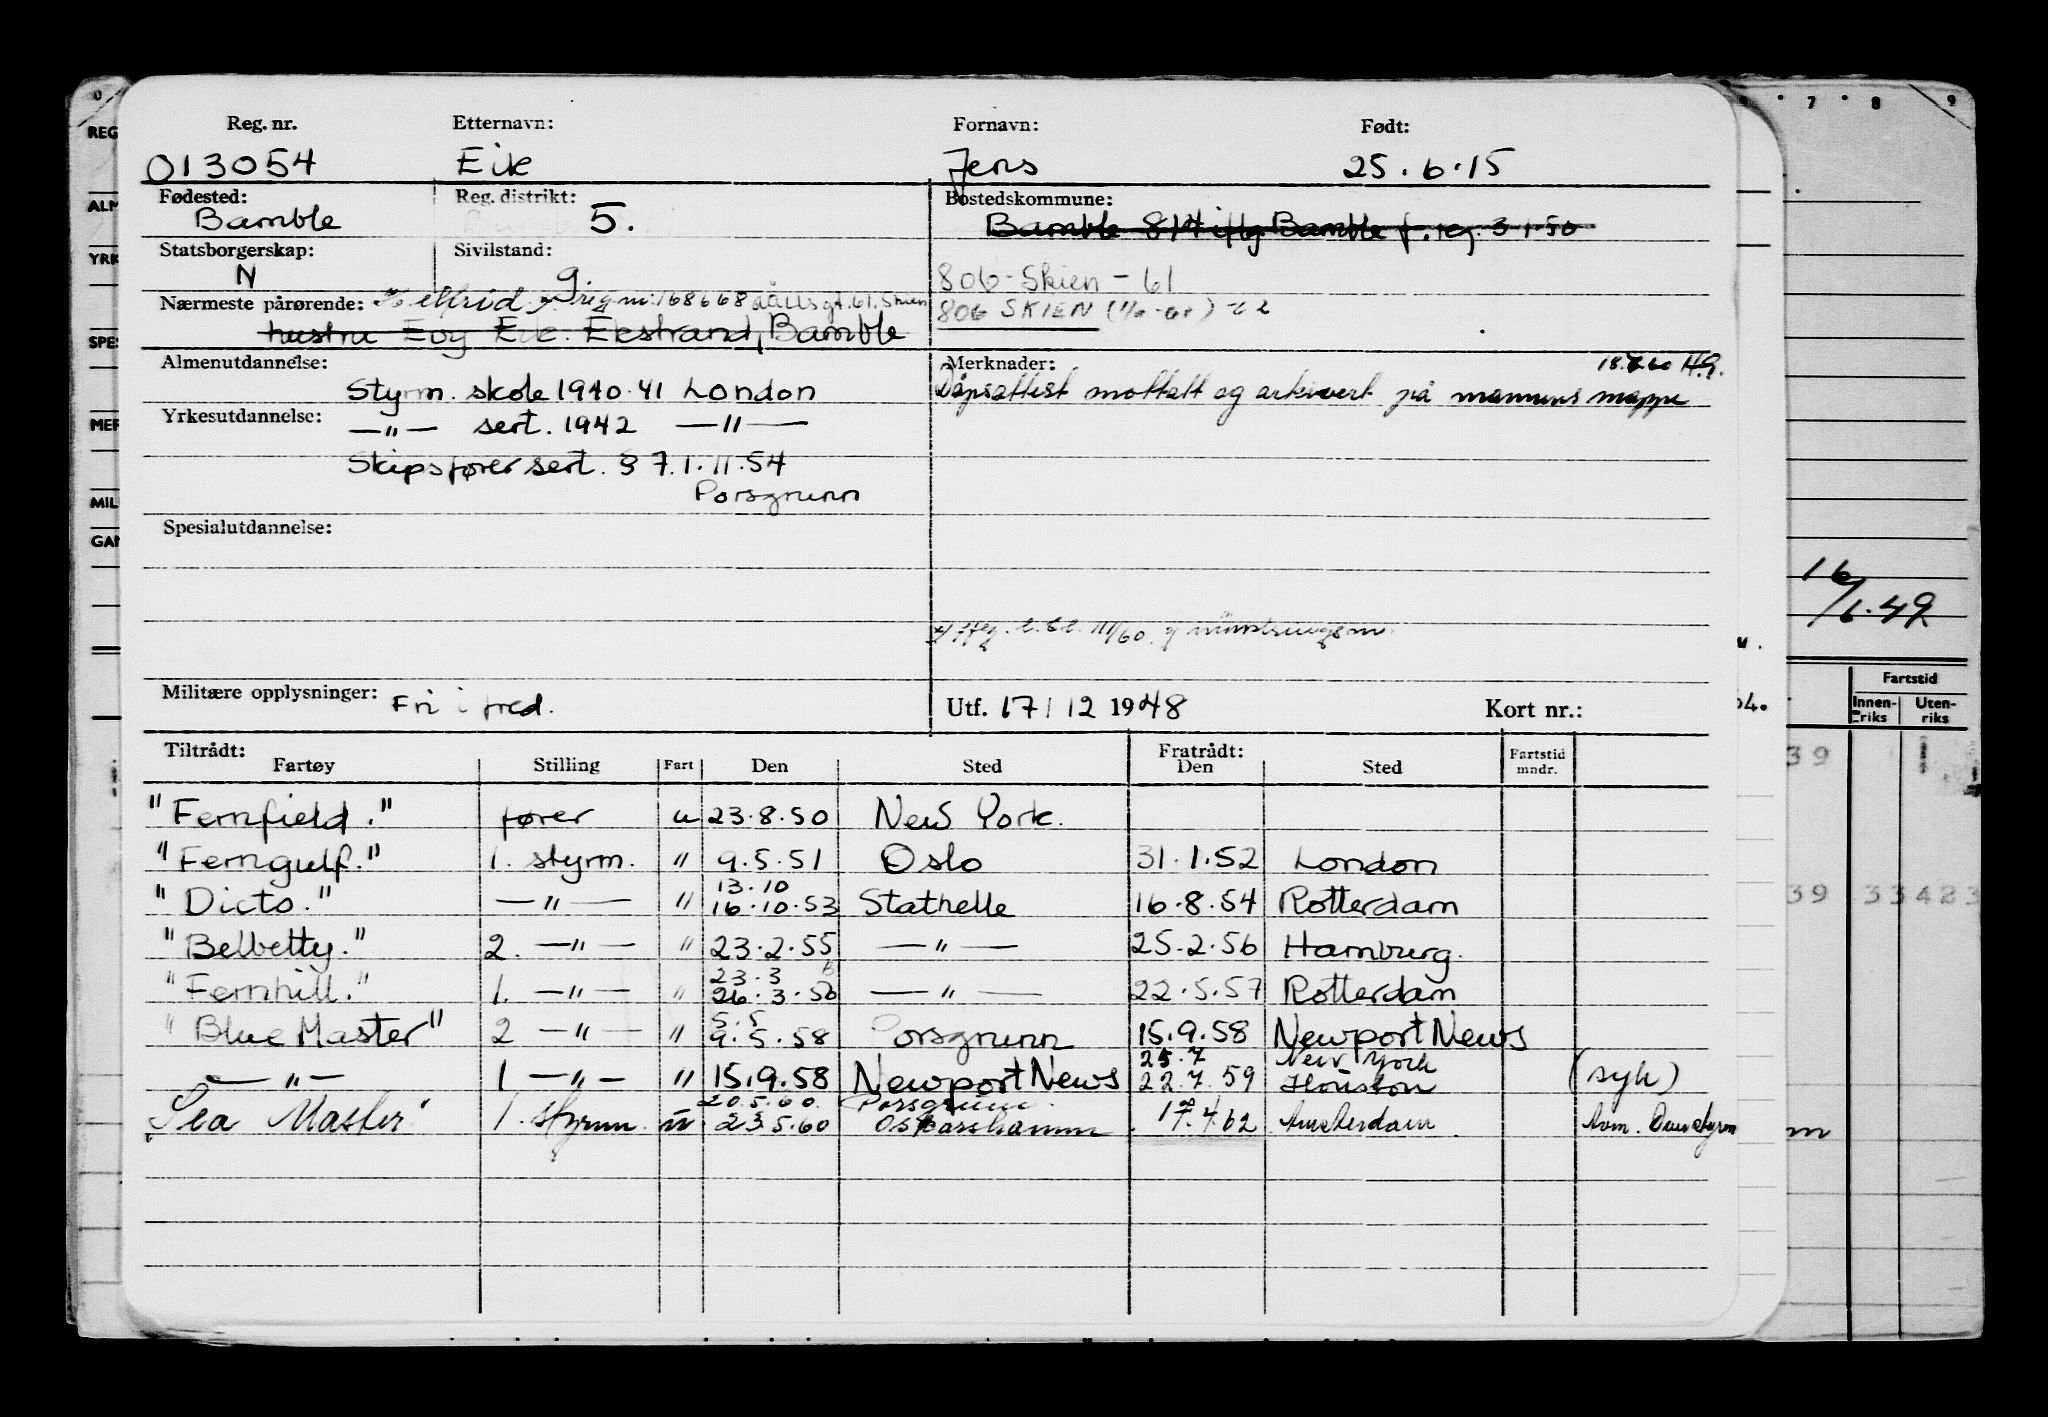 Reg. nr. Etternavn: Fornavn: Født:
013054 Eik Jens 25.6.15
Fødested: Reg. distrikt: Bostedskommune:
Bamble 5. Bamble 814 iflg Bamble f.reg. 3-1-50
Statsborgerskap: Sivilstand:
N g 806-Skien-61
Nærmeste pårørende: reg nr: 168668 61, Skien 806 SKIEN
hustru Evy Eik. Ekstrand, Bamble
Almenutdannelse: Merknader: H.G.
Styrm. skole 1940-41 London Dåpsattest mottatt og arkivert på mannens mappe
Yrkesutdannelse: —"— sert. 1942 —"—
Skipsfører sert. § 7. 1.11.54
Porsgrunn
Spesialutdannelse:
Militære opplysninger: Fri i fred. Utf. 17/12 1948 Kort nr.:
Tiltrådt: Fratrådt: Fartstid
Fartøy Stilling Fart Den Sted Den Sted mndr.
"Fernfield." fører u 23.8.50 New York.
"Ferngulf." 1. styrm. " 9.5.51 Oslo 31.1.52 London
13.10
"Dicto." —"— " 16.10.53 Stathelle 16.8.54 Rotterdam
"Belbetty." 2. —"— " 23.2.55 —"— 25.2.56 Hamburg.
23.3
"Fernhill." 1. —"— " 26.3.56 —"— 22.5.57 Rotterdam
5.5
"Blue Master" 2 —"— " 9.5.58 Porsgrunn 15.9.58 Newport News
25.7 New York
—"— 1 —"— " 15.9.58 Newport News 22.7.59 Houston (syk)
20.5.60. Porsgrunn.
Sea Master" 1. styrm u 23.5.60 Oskarshamn 17.4.62 Amsterdam
REG
ALM
YRK
SPES
MER
MIL
GAN
7 8 9
16/1.49
Fartstid
Innen-riks Uten-riks
39 1
39 33423